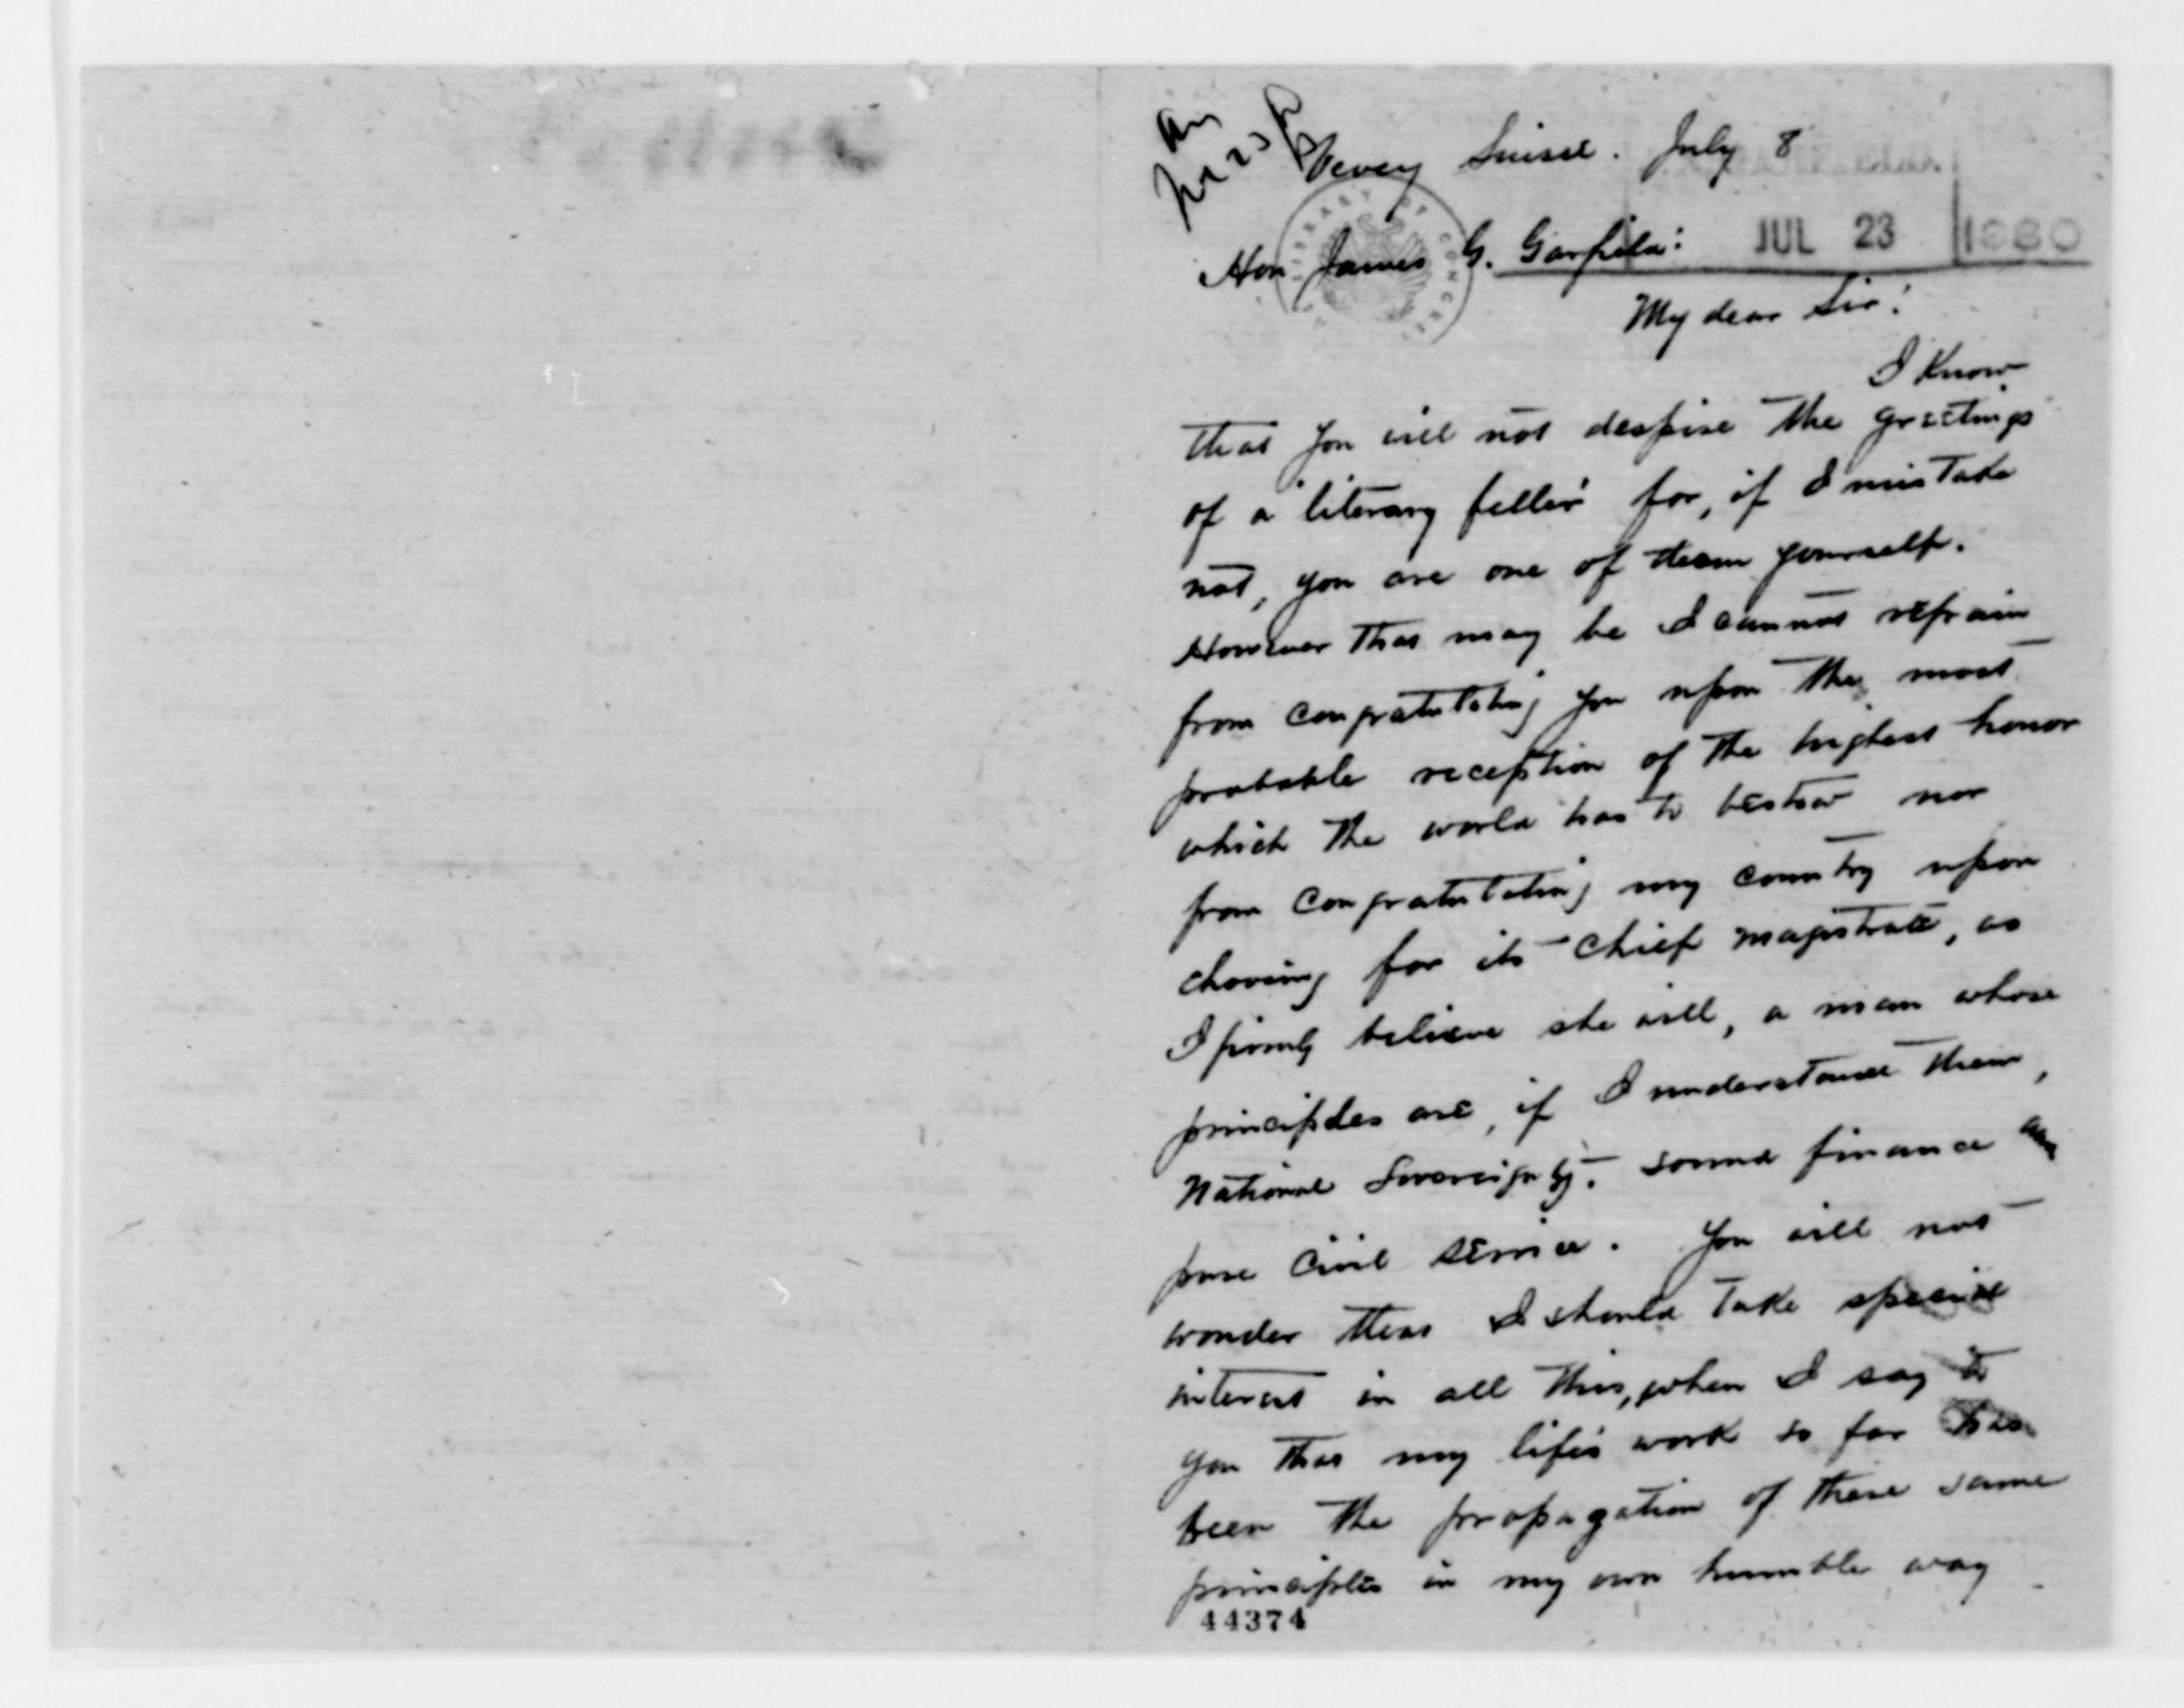 An
July 23
Vevey Suisse. July 8
JUL 23 1880
LIBRARY OF CONGRESS
Hon James G. Garfield:
My dear Sir:
I know
that you will not despise the greetings
of a "literary feller" for, if I mistake
not, you are one of them yourself.
However that may be I cannot refrain
from congratulating you upon the most
probable reception of the highest honor
which the world has to bestow nor
from congratulating my country upon
choosing for its chief magistrate, as
I firmly believe she will, a man whose
principles are, if I understand them,
National Sovereignty. sound finance and
pure civil service. You will not
wonder that I should take special
interest in all this, when I say to
you that my life's work so far has
been the propagation of these same
principles in my own humble way
44374